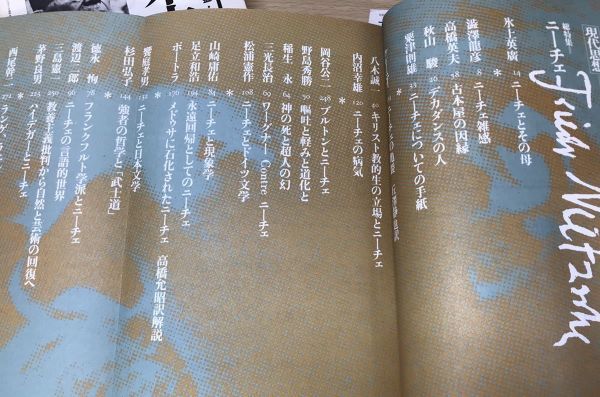 現代思想
総特集=ニーチェ
氷上英廣 14 ニーチェとその母
*
澁澤龍彦 8 ニーチェ雑感
高橋英夫 18 古本屋の因縁
秋山駿 40 デカダンスの人
粟津則雄 33 ニーチェについての手紙
*
八木誠一 40 キリスト教的生の立場とニーチェ
内沼幸雄 120 ニーチェの病気
*
岡谷公二 248 ブルトンとニーチェ
野島秀勝 50 嘔吐と軽みと道化と
稲生永 64 神の死と超人の幻
三光長治 69 ワーグナー Contre ニーチェ
松浦憲作 108 ニーチェとドイツ文学
*
山崎庸佑 84 ニーチェと現象学
足立和浩 194 永遠回帰としてのニーチェ
ポートラ 170 メドゥサに石化されたニーチェ 高橋允昭訳解説
*
饗庭孝男 132 ニーチェと日本文学
杉田弘子 144 強者の哲学と「武士道」
*
徳永恂 78 フランクフルト学派とニーチェ
渡辺二郎 96 ニーチェの言語的世界
三島憲一 250 教養主義批判から自然と芸術の回復へ
茅野良男 224 ハイデガーとニーチェ
西尾幹二 272